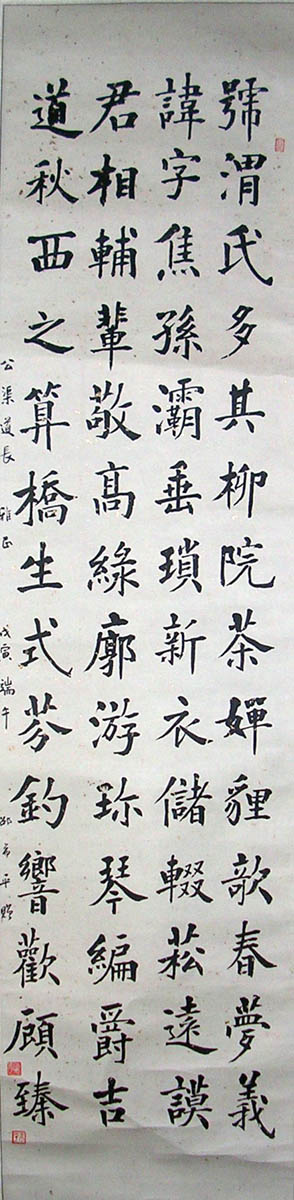 號渭氏多其柳院茶嬋貍歌春夢義
諱字焦孫灞垂瑣新衣儲輟菘遠謨
君相輔輩敬高緣廓游珎琴編爵吉
道秋西之算橋生式芬釣響歡顧臻
公渠道長 雅正 戊寅端午 平贈